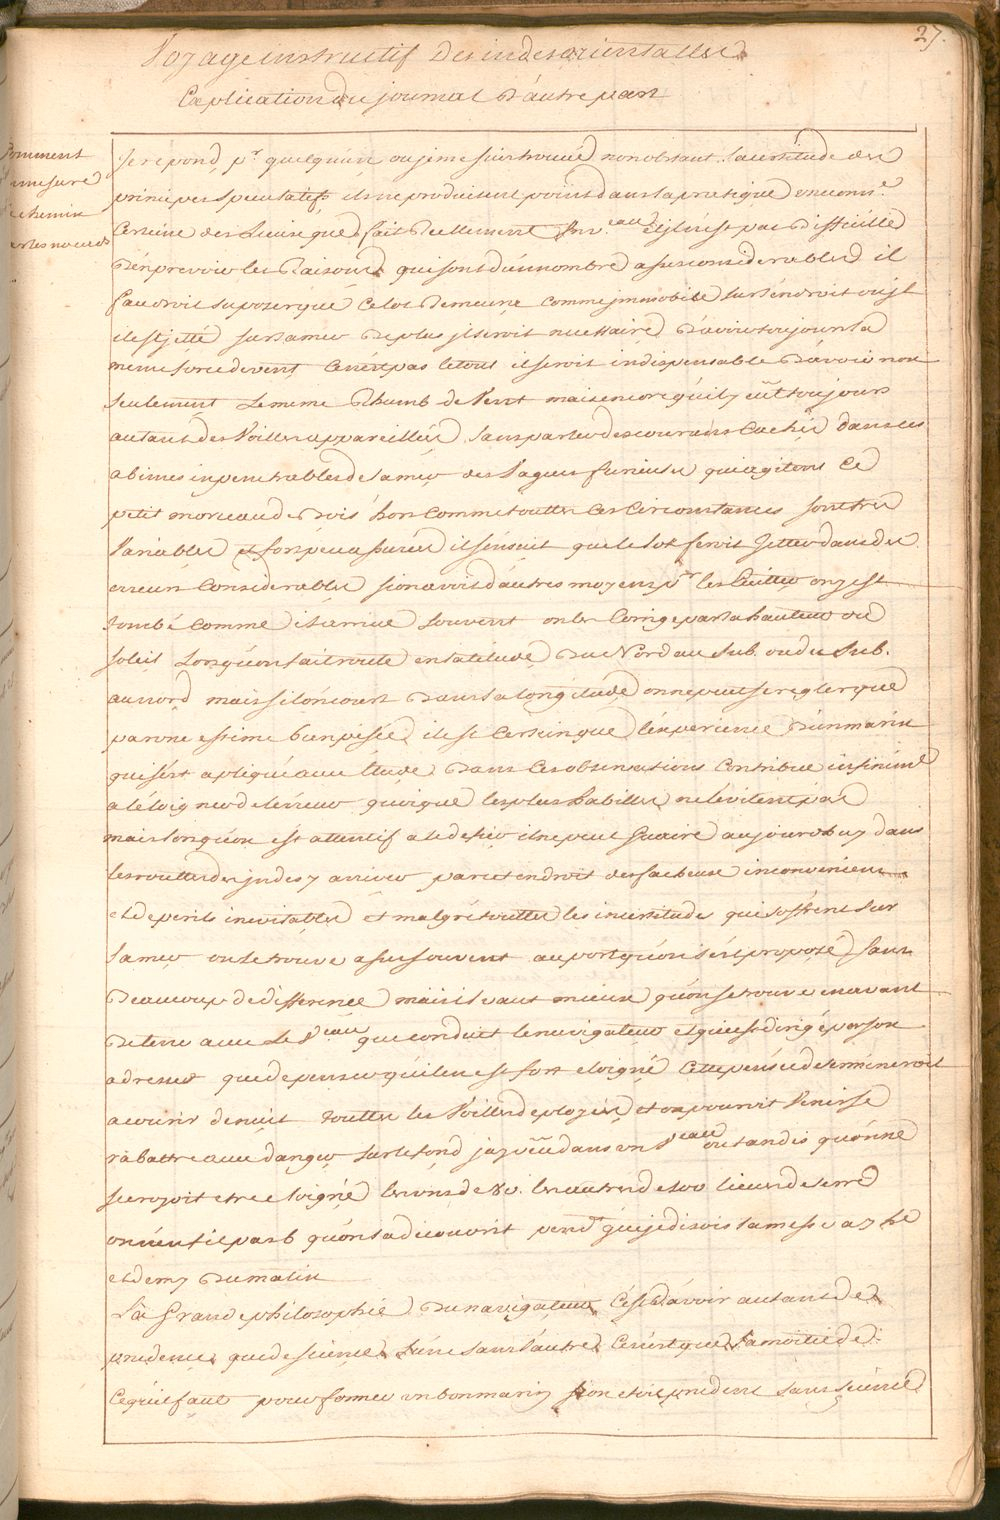 27.
Voyage instructif Des indes orientalles
Explication Du journal D'autre part
Comment
mesure
chemin
les noeuds
Je repond pr. quelqu'un ou je me suis trouvé nonobstant la certitude des
principes speculatifs ils ne produisent point dans la pratique
Certaine des Lieux que fait Reellement Il n'est pas Difficille
D'en prevoir les Raisons qui sont d'un nombre asses considerables il
faudroit suposer que Ce lot Demeure comme immobile sur l'endroit ou jl
ils jetté sur la mer De plus jl seroit necessaire D'avoir toujours la
meme force de vent Ce n'est pas le tout il seroit indispensable D'avoir non
seulement Le meme Rhumb de Vent mais encore qu'il y eût toujours
autant des Voilles appareillées sans parler des courans Cachés dans les
abimes inpenetrables de la mer des Vagues furieuses qui agitent Ce
petit morceau de Bois hors comme touttes Ces Circonstances sont tres
Variables et fort peu assurées il s'ensuit que le Lok feroit Jetter dans des
erreurs Considerables si on avoit d'autres moyens pr. les Eviter on y est
tombé comme il arrive souvent on les Corrige par la hauteur du
soleil Lorsqu'on fait route en latitude Du Nord au Sud. ou du Sud.
au nord mais si l'on court Dans la longitude on ne peut se regler que
par une estime bien pesée il est Certain que l'experience D'un marin
qui s'est apliqué avec Etude Dans Ces observations Contribue infiniment
a l'éloigner de l'erreur quoique les plus habilles ne l'evitent pas
mais lorsqu'on est attentif a le il ne peut Guaire aujourd'huy dans
les routtes des jndes y arriver par cet endroit des facheuse inconveniens
et de perils inevitables et malgré touttes les incertitudes qui s'offrent sur
la mer on se trouve asses souvent au port qu'on s'est proposé sans
Beaucoup de difference mais il vaut mieux qu'on se trouve en avant
De terre avec Le Veau que conduit le navigateur et qui est dirigé par son
adresse que de penser qu'il en est fort eloigné Cette pensée determineroit
a courir de nuit touttes les Voilles deployées et on pourroit Venir se
rabattre avec danger sur le fond j'ay vû dans un Veau ou tandis qu'on ne
se croyoit etre eloigné les uns de 80. les autres de 100 lieues de terre
on n'eut il pas qu'on la decouvrit pendt. que je disois la messe a 7 he
et demy Du matin
La Grande philosophie Du navigateur C'est D'avoir autant de
prudence que de science L'une sans l'autre Ce n'est que La moitié de
Ce qu'il faut pour former un bon marin si on etoit prudent sans science